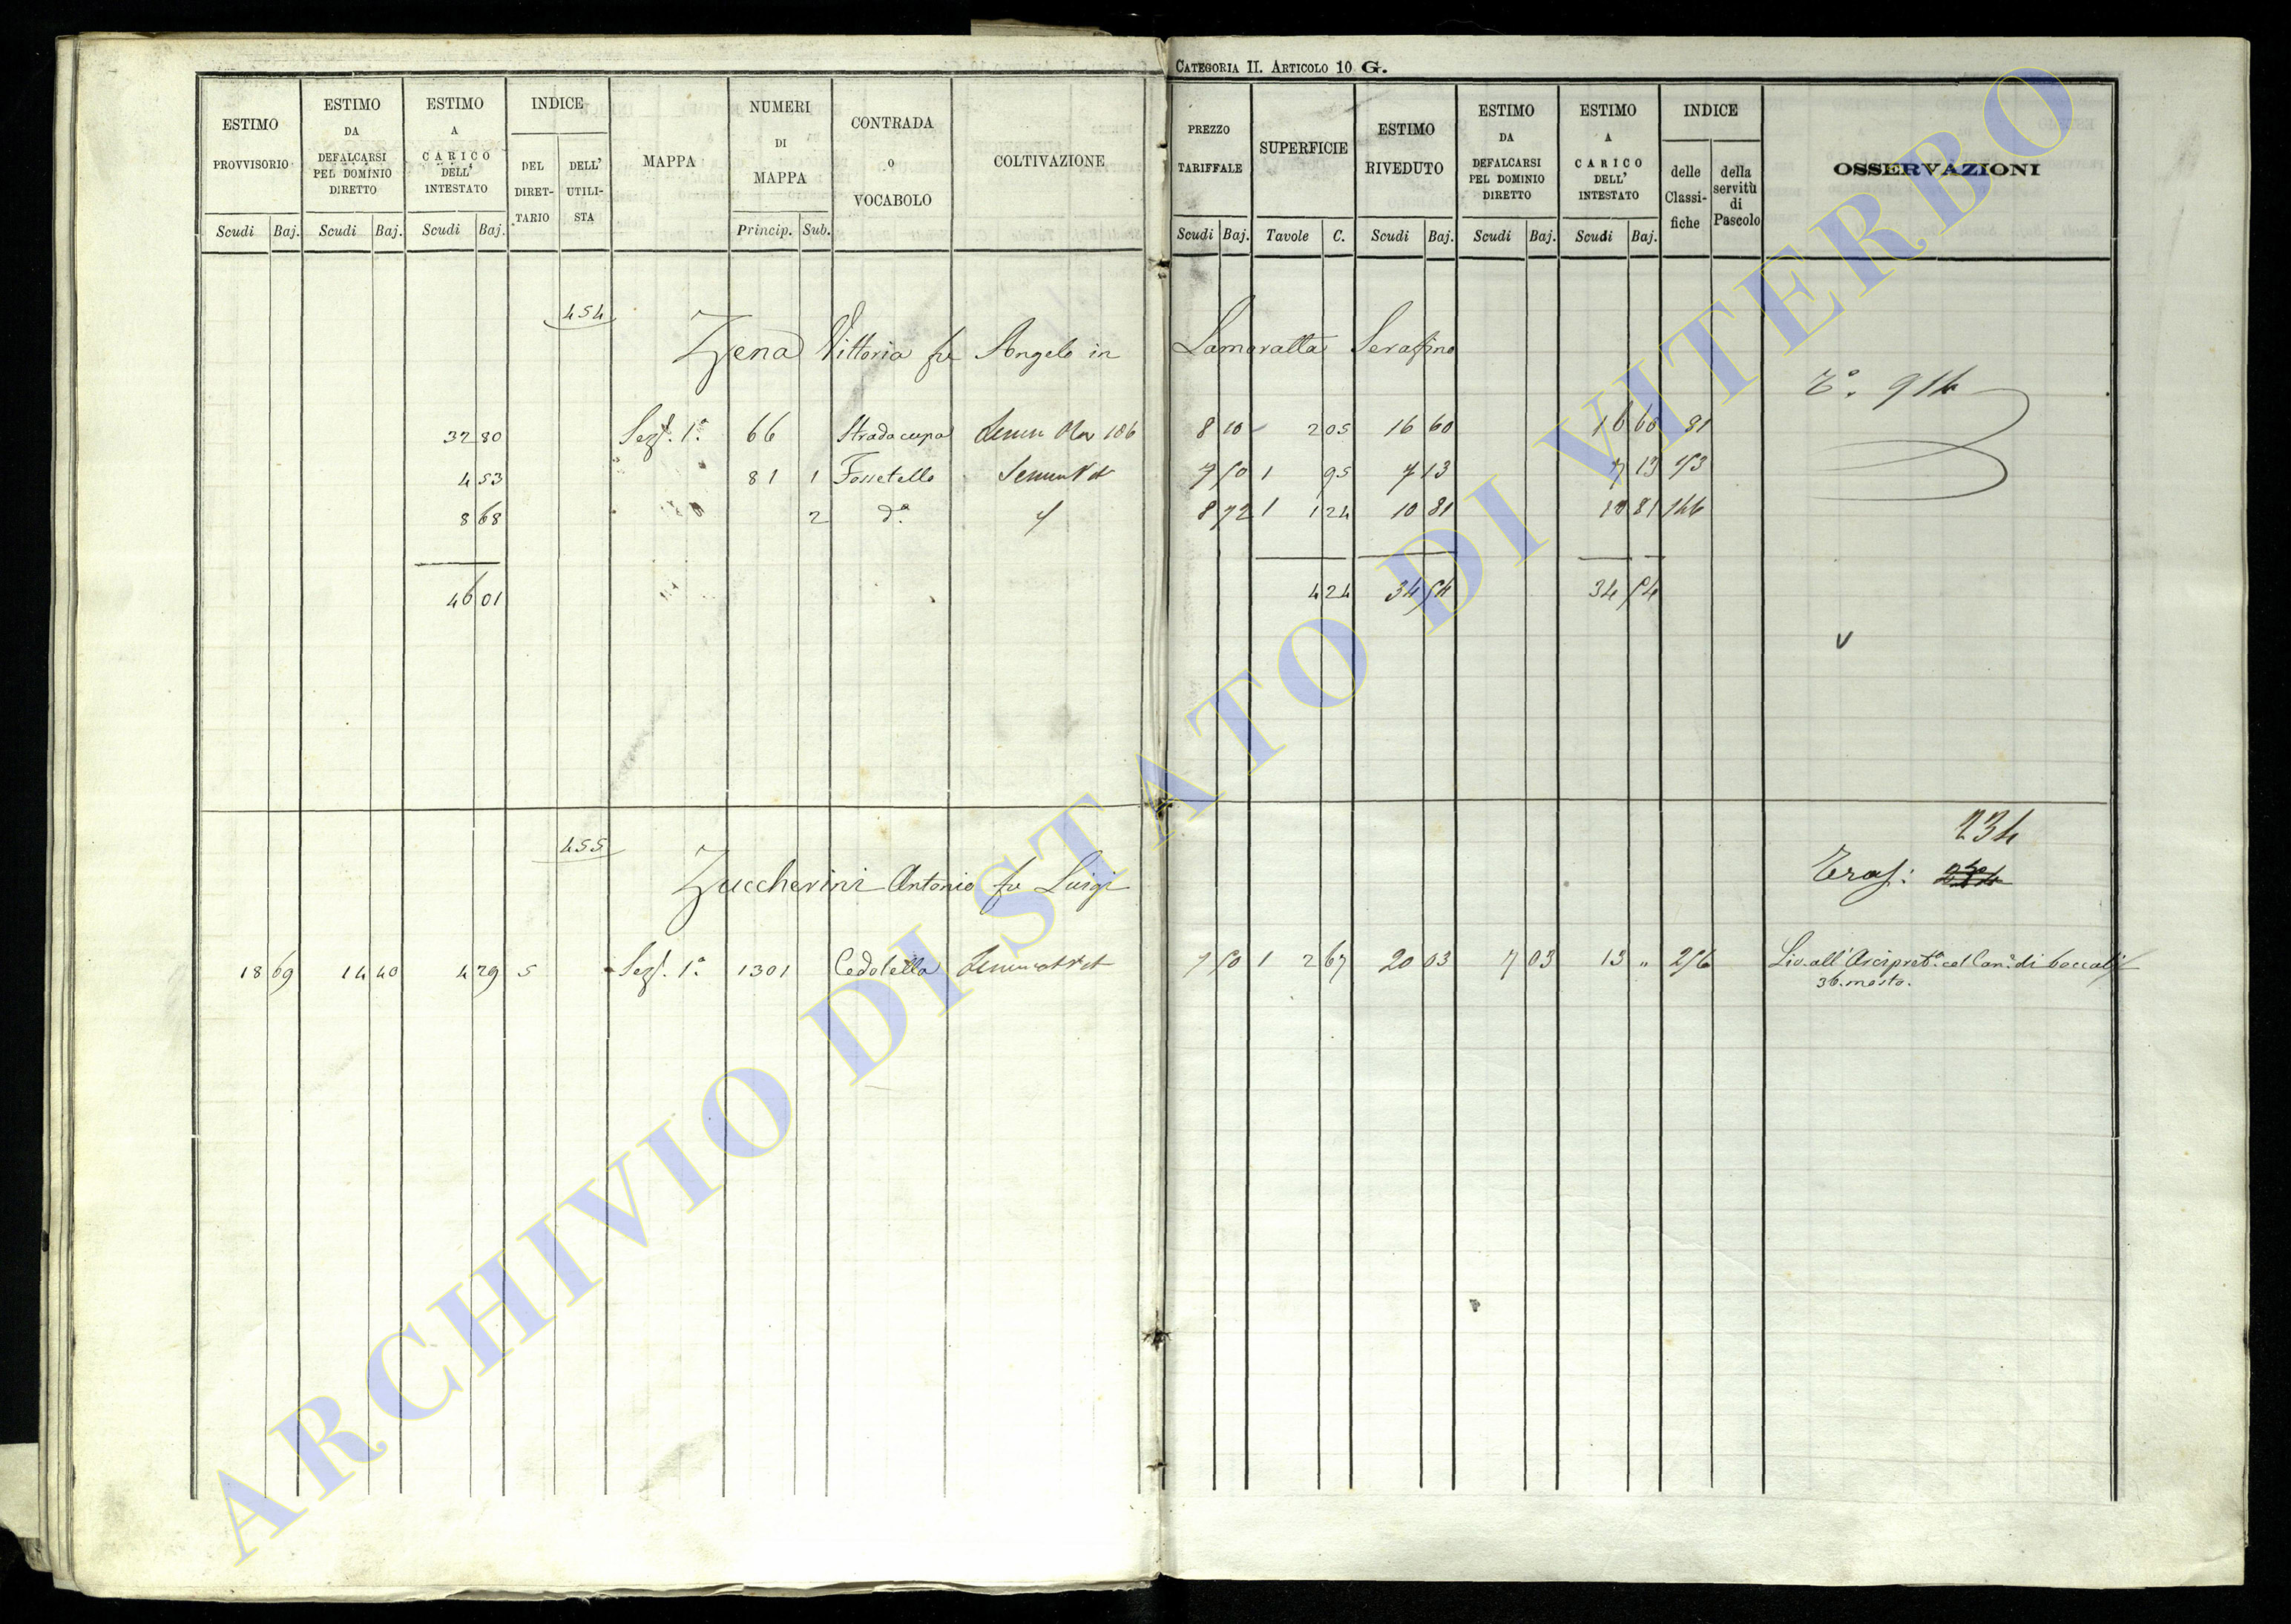 CATEGORIA II. ARTICOLO 10 G.
ESTIMO PROVVISORIO Scudi Baj.
ESTIMO DA DEFALCARSI PEL DOMINIO DIRETTO Scudi Baj.
ESTIMO A CARICO DELL' INTESTATO Scudi Baj.
INDICE DEL DIRETTARIO DELL' UTILISTA
MAPPA
NUMERI DI MAPPA Princip. Sub.
CONTRADA O VOCABOLO
COLTIVAZIONE
PREZZO TARIFFALE Scudi Baj.
SUPERFICIE Tavole C.
ESTIMO RIVEDUTO Scudi Baj.
ESTIMO DA DEFALCARSI PEL DOMINIO DIRETTO Scudi Baj.
ESTIMO A CARICO DELL' INTESTATO Scudi Baj.
INDICE delle Classifiche della servitù di Pascolo
OSSERVAZIONI
454
Zena Vittoria fu Angelo in Lamoratta Serafino
T.° 914
32 80 Sez. 1.ª 66 Strada cupa 106 8 10 2 05 16 60 16 60 81
4 53 81 1 Fossetello 7 50 1 95 7 13 7 13 153
8 68 2 d.ª 8 72 1 1 24 10 81 10 81 144
46 01 4 24 34 54 34 54
v
455
234
Zuccherini Antonio fu Luigi
Tras:
18 69 14 40 4 29 5 Sez. 1.ª 1301 Cedolella 7 50 1 2 67 20 03 7 03 13 " 256 Liv. all' Arcipret.ª col Can.e di boccali
36. mosto.
ARCHIVIO DI STATO DI VITERBO